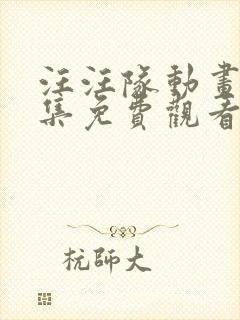 汪汪隊動畫
集免費觀看
杭師大